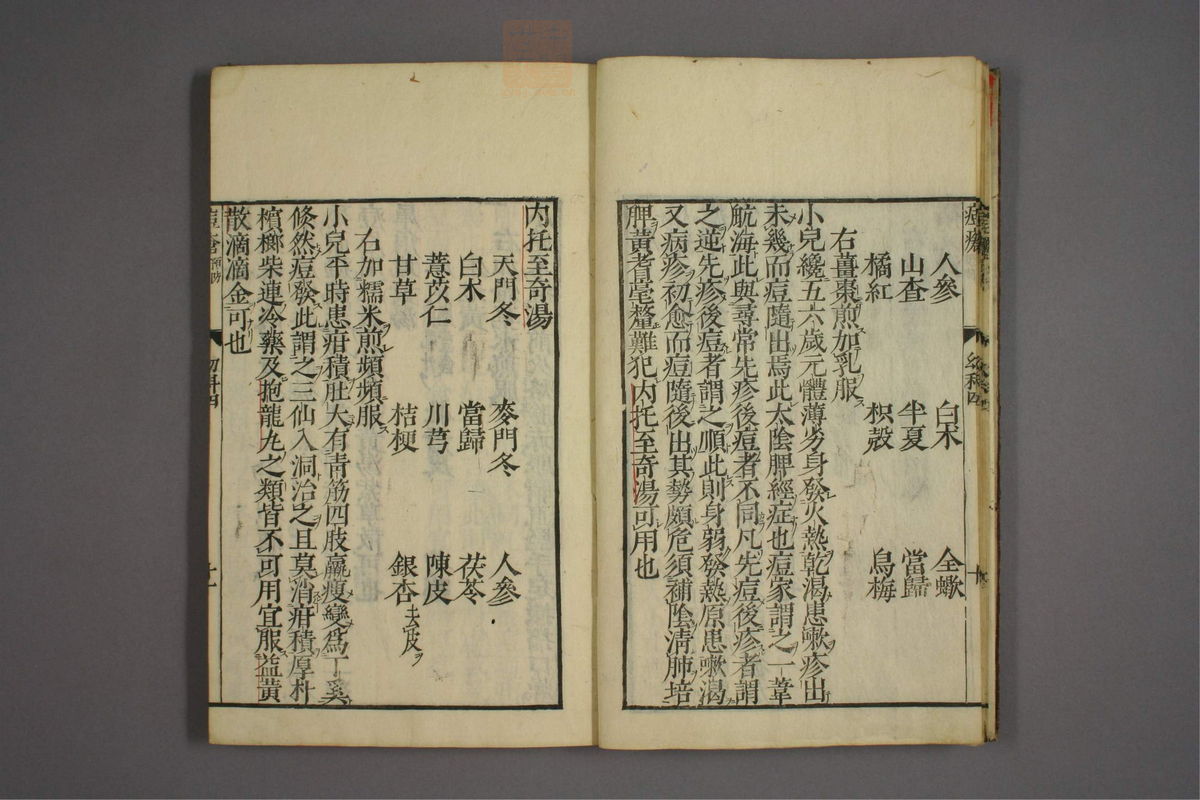 人參　白朮　全蠍
山查　半夏　當歸
橘紅　枳殼　烏梅
右薑棗煎加乳服
小兒纔五六歲元體薄劣身發火熱乾渴患嗽疹出
未幾而痘隨出焉此太陰脾經症也痘家謂之一葦
航海此與尋常先疹後痘者不同凡先痘後疹者謂
之逆先疹後痘者謂之順此則身弱發熱原患嗽渴
又病疹初愈而痘隨後出其勢頗危須補陰淸肺培
脾黃耆毫釐難犯内托至奇湯可用也
内托至奇湯
天門冬　麥門冬　人參
白朮　當歸　茯苓
薏苡仁　川芎　陳皮
甘草　桔梗　銀杏去皮ヲ
右加糯米煎頻頻服
小兒平時患疳積肚大有青筋四肢羸瘦變爲丁奚
倐然痘發此謂之三仙入洞治之且莫消疳積厚朴
檳榔柴連冷藥及抱龍丸之類皆不可用宜服益黃
散滴滴金可也
幼科四
十一